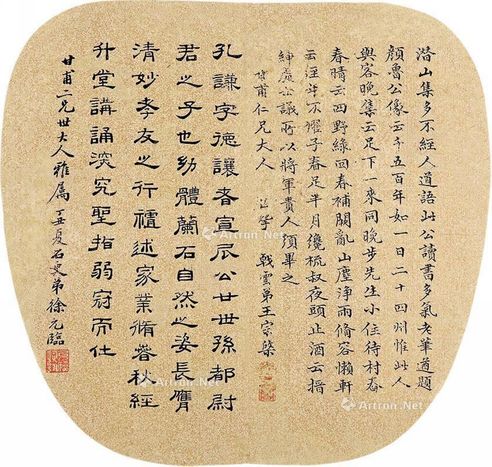 潜山集多不經人道語此公讀書多氣老筆道題
顏魯公像云千五百年如一日二十四州惟此人
與客晚集云足下一來同晚步先生小住待村舂
春晴云四野綠回春補闕亂山塵淨雨脩容懶軒
云淫年不櫂子春足半月纔梳叔夜頭止酒云搢
紳處士議所以將軍貴人須畢之
甘甫仁兄大人 正學 戟雲弟王宗
孔謙字德讓者宣尼公廿世孫都尉
君之子也幼體蘭石自然之姿長膺
清妙孝友之行禧述家業脩春秋經
升堂講誦深究聖指弱冠而仕
甘甫二兄世大人雅屬 丁丑夏石史弟徐元臨
Artron.Net
Artron.Net
Artron.Net